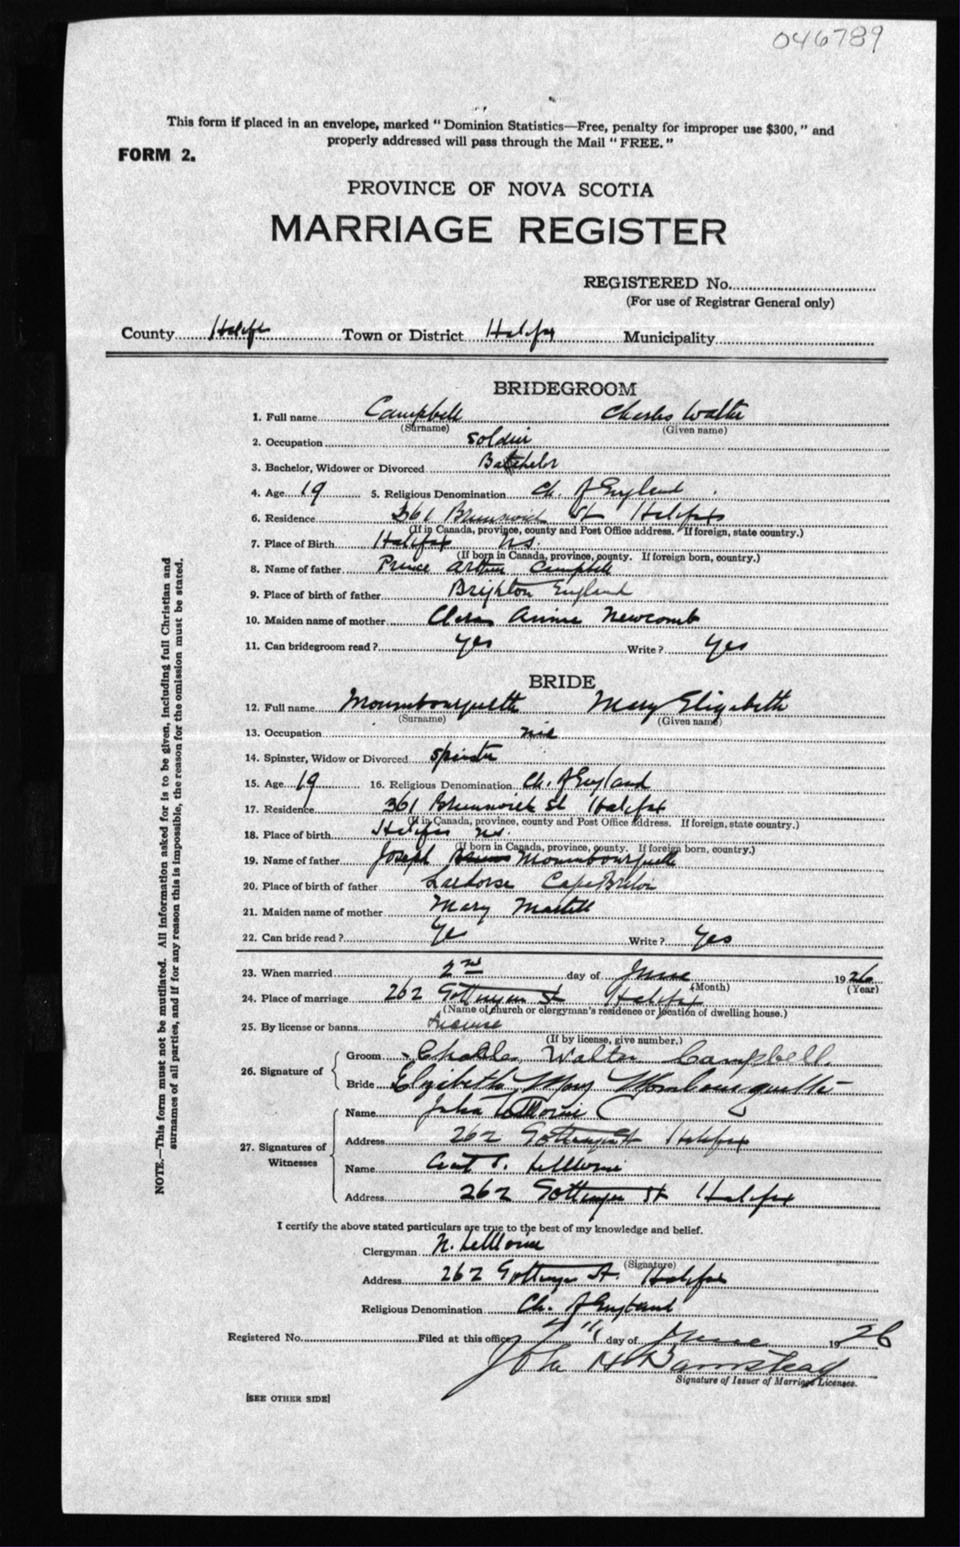 046789
This form if placed in an envelope, marked " Dominion Statistics—Free, penalty for improper use $300, " and
properly addressed will pass through the Mail " FREE. "
FORM 2.
PROVINCE OF NOVA SCOTIA
MARRIAGE REGISTER
REGISTERED No.
(For use of Registrar General only)
County Halifax Town or District Halifax Municipality
BRIDEGROOM
1. Full name Campbell Charles Walter
(Surname) (Given name)
2. Occupation soldier
3. Bachelor, Widower or Divorced Batchelor
4. Age 19 5. Religious Denomination Ch. of England
6. Residence 361 Brunswick St Halifax
(If in Canada, province, county and Post Office address. If foreign, state country.)
7. Place of Birth Halifax N.S.
(If born in Canada, province, county. If foreign born, country.)
8. Name of father Prince Arthur Campbell
9. Place of birth of father Brighton England
10. Maiden name of mother Clara Annie Newcomb
11. Can bridegroom read? yes Write? yes
BRIDE
12. Full name Mary Elizabeth
(Surname) (Given name)
13. Occupation nil
14. Spinster, Widow or Divorced spinster
15. Age 19 16. Religious Denomination Ch. of England
17. Residence 361 Brunswick St Halifax
(If in Canada, province, county and Post Office address. If foreign, state country.)
18. Place of birth Halifax N.S.
(If born in Canada, province, county. If foreign born, country.)
19. Name of father Joseph
20. Place of birth of father Cape Breton
21. Maiden name of mother Mary
22. Can bride read? Yes Write? Yes
23. When married 2nd day of June 1926
(Month) (Year)
24. Place of marriage 262 Gottingen St Halifax
(Name of church or clergyman's residence or location of dwelling house.)
25. By license or banns License
(If by license, give number.)
26. Signature of
Groom Charles Walter Campbell.
Bride Elizabeth Mary
27. Signatures of Witnesses
Name John
Address 262 Gottingen St Halifax
Name
Address 262 Gottingen St Halifax
I certify the above stated particulars are true to the best of my knowledge and belief.
Clergyman N. LeMoine
(Signature)
Address 262 Gottingen St. Halifax
Religious Denomination Ch. of England
Registered No. Filed at this office day of June 1926
John H Barnstead
Signature of Issuer of Marriage Licenses.
[SEE OTHER SIDE]
NOTE.—This form must not be mutilated. All information asked for is to be given, including full Christian and
surnames of all parties, and if for any reason this is impossible, the reason for the omission must be stated.